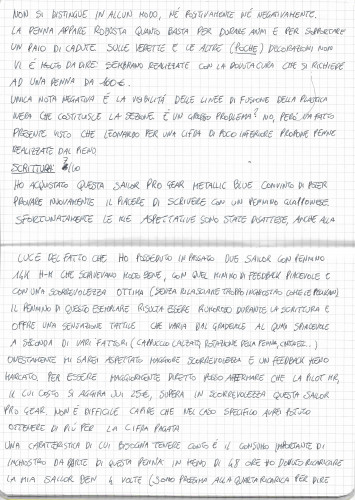 NON SI DISTINGUE IN ALCUN MODO, NÉ POSITIVAMENTE NÉ NEGATIVAMENTE.
LA PENNA APPARE ROBUSTA QUANTO BASTA PER DURARE ANNI E PER SOPPORTARE
UN PAIO DI CADUTE. SULLE VERETTE E LE ALTRE (POCHE) DECORAZIONI NON
VI È MOLTO DA DIRE: SEMBRANO REALIZZATE CON LA DOVUTA CURA CHE SI RICHIEDE
AD UNA PENNA DA 100€.
UNICA NOTA NEGATIVA È LA VISIBILITÀ DELLE LINEE DI FUSIONE DELLA PLASTICA
NERA CHE COSTITUISCE LA SEZIONE. È UN GROSSO PROBLEMA? NO, PERÒ VA FATTO
PRESENTE VISTO CHE LEONARDO PER UNA CIFRA DI POCO INFERIORE PROPONE PENNE
REALIZZATE DAL PIENO.
SCRITTURA 7/10
HO ACQUISTATO QUESTA SAILOR PRO GEAR METALLIC BLUE CONVINTO DI POTER
PROVARE NUOVAMENTE IL PIACERE DI SCRIVERE CON UN PENNINO GIAPPONESE.
SFORTUNATAMENTE LE MIE ASPETTATIVE SONO STATE DISATTESE, ANCHE ALLA
LUCE DEL FATTO CHE HO POSSEDUTO IN PASSATO DUE SAILOR CON PENNINO
14K H-M CHE SCRIVEVANO MOLTO BENE, CON QUEL MINIMO DI FEEDBACK PIACEVOLE E
CON UNA SCORREVOLEZZA OTTIMA (SENZA RILASCIARE TROPPO INCHIOSTRO COME LE PELIKAN)
IL PENNINO DI QUESTO ESEMPLARE RISULTA ESSERE RUMOROSO DURANTE LA SCRITTURA E
OFFRE UNA SENSAZIONE TATTILE CHE VARIA DAL GRADEVOLE AL QUASI SPIACEVOLE
A SECONDA DI VARI FATTORI (CAPPUCCIO CALZATO, ROTAZIONE DELLA PENNA, )
ONESTAMENTE MI SAREI ASPETTATO MAGGIORE SCORREVOLEZZA E UN FEEDBACK MENO
MARCATO. PER ESSERE MAGGIORMENTE DIRETTO POSSO AFFERMARE CHE LA PILOT MR,
IL CUI COSTO SI AGGIRA SUI 25€, SUPERA IN SCORREVOLEZZA QUESTA SAILOR
PRO GEAR. NON È DIFFICILE CAPIRE CHE NEL CASO SPECIFICO AVREI POTUTO
OTTENERE DI PIÙ PER LA CIFRA PAGATA
UNA CARATTERISTICA DI CUI BISOGNA TENERE CONTO È IL CONSUMO IMPORTANTE DI
INCHIOSTRO DA PARTE DI QUESTA PENNA: IN MENO DI 48 ORE HO DOVUTO RICARICARE
LA MIA SAILOR BEN 4 VOLTE (SONO PROSSIMO ALLA QUARTA RICARICA PER DIRE